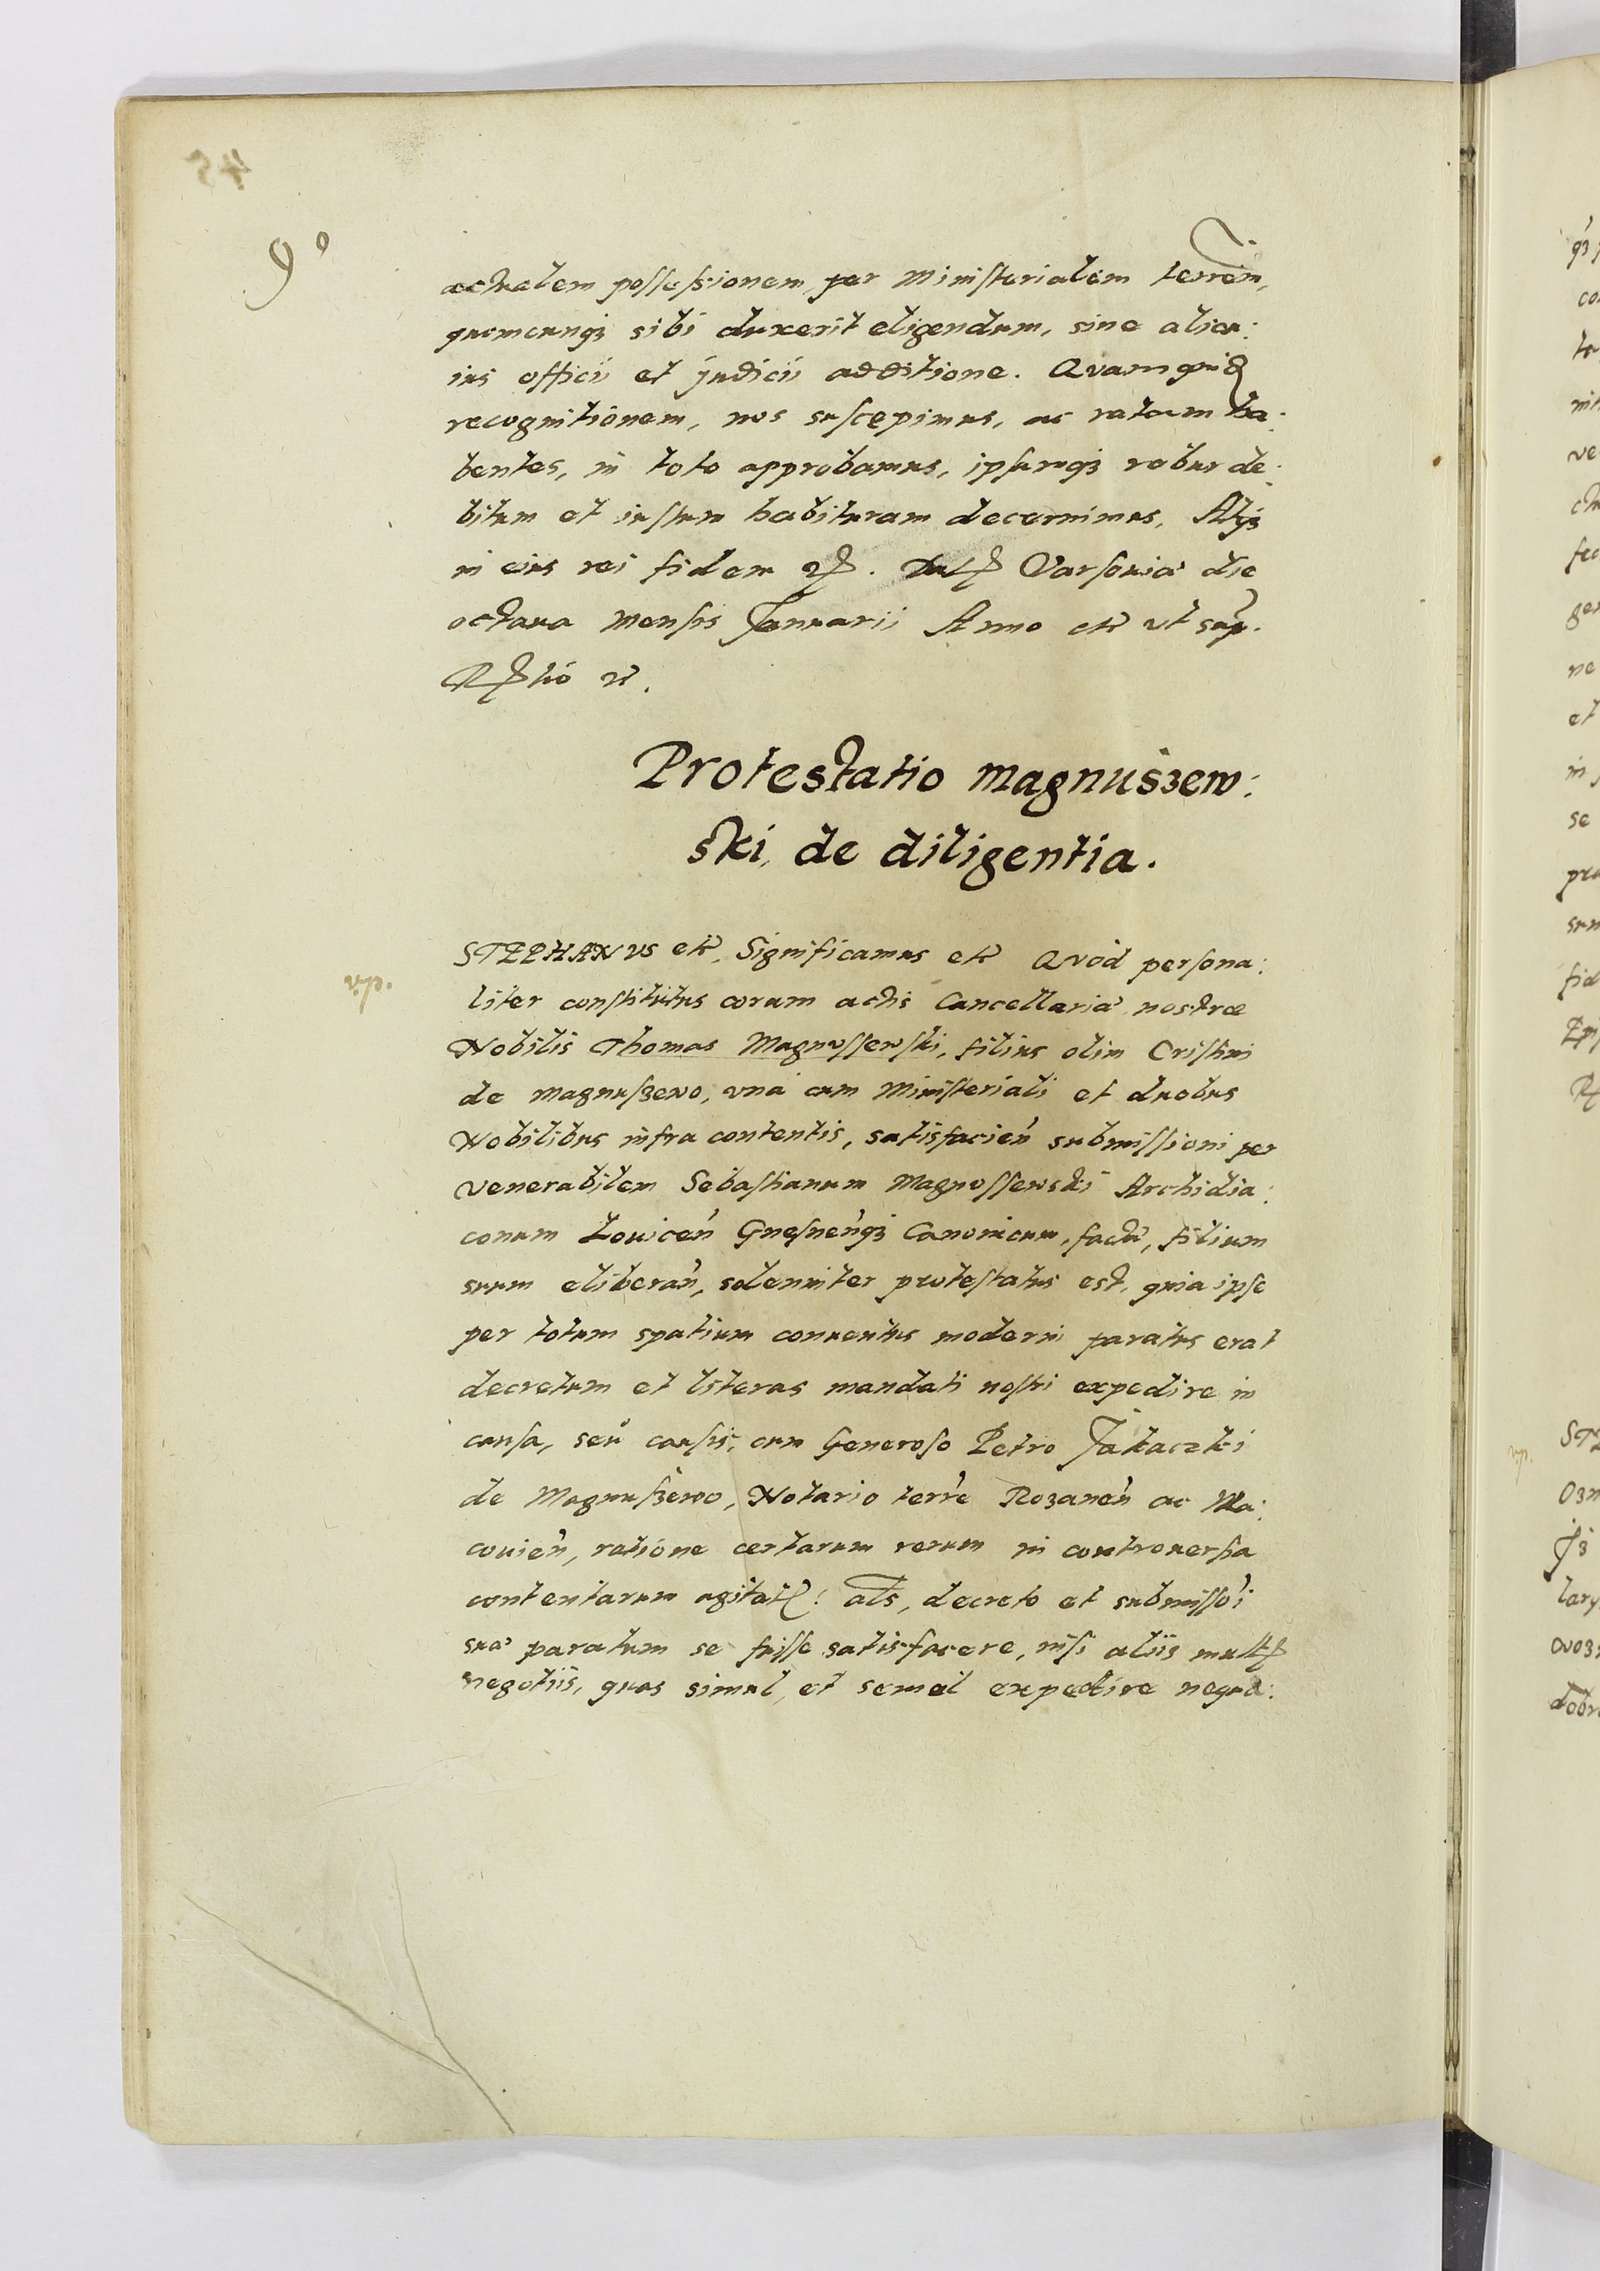 9°
actualem possessionem, per Ministerialem terren̄,
quemcunqꝫ sibi duxerit eligendum, sine alicu:
ius officii et judicii additione. Quamquid
recognitionem, nos suscepimus, ac ratam ha:
bentes, in toto approbamus, ipsamqꝫ robur de:
bitum et iustum habituram decernimus, Atqꝫ
in eius rei fidem
Varsouiæ die
octaua Mensis Januarii Anno etc̃ vt sup.
Protestatio magnuszew:
ski, de diligentia.
STEPHANVS etc̃, Significamus etc̃ Quòd persona:
liter constitutus coram actis Cancellariæ nostræ
Nobilis Thomas Magnussewski, filius olim Cristini
de magnuszewo, vnà cum Ministeriali et duobus
Nobilibus infra contentis, satisfacień submissioni per
Venerabilem Sebastianum Magnussewski Archidia:
conum Louiceń Gnesneńqꝫ Canonicum, factæ, filium
suum eliberań, solenniter protestatus est, quia ipse
per totum spatium conuentus moderni paratus erat
decretum et literas mandati nostri expedire in
causa, seu causis, cum Generoso Petro Jakaczki
de Magnuszewo, Notario terrę Rozaneń ac Ma:
couień, ratione certarum rerum in controuersia
contentarum agitat: als, decreto et submissoi
suæ paratum se fuisse satisfacere, nisi aliis mult
negotiis, quas simul, et semel expedire nequa: